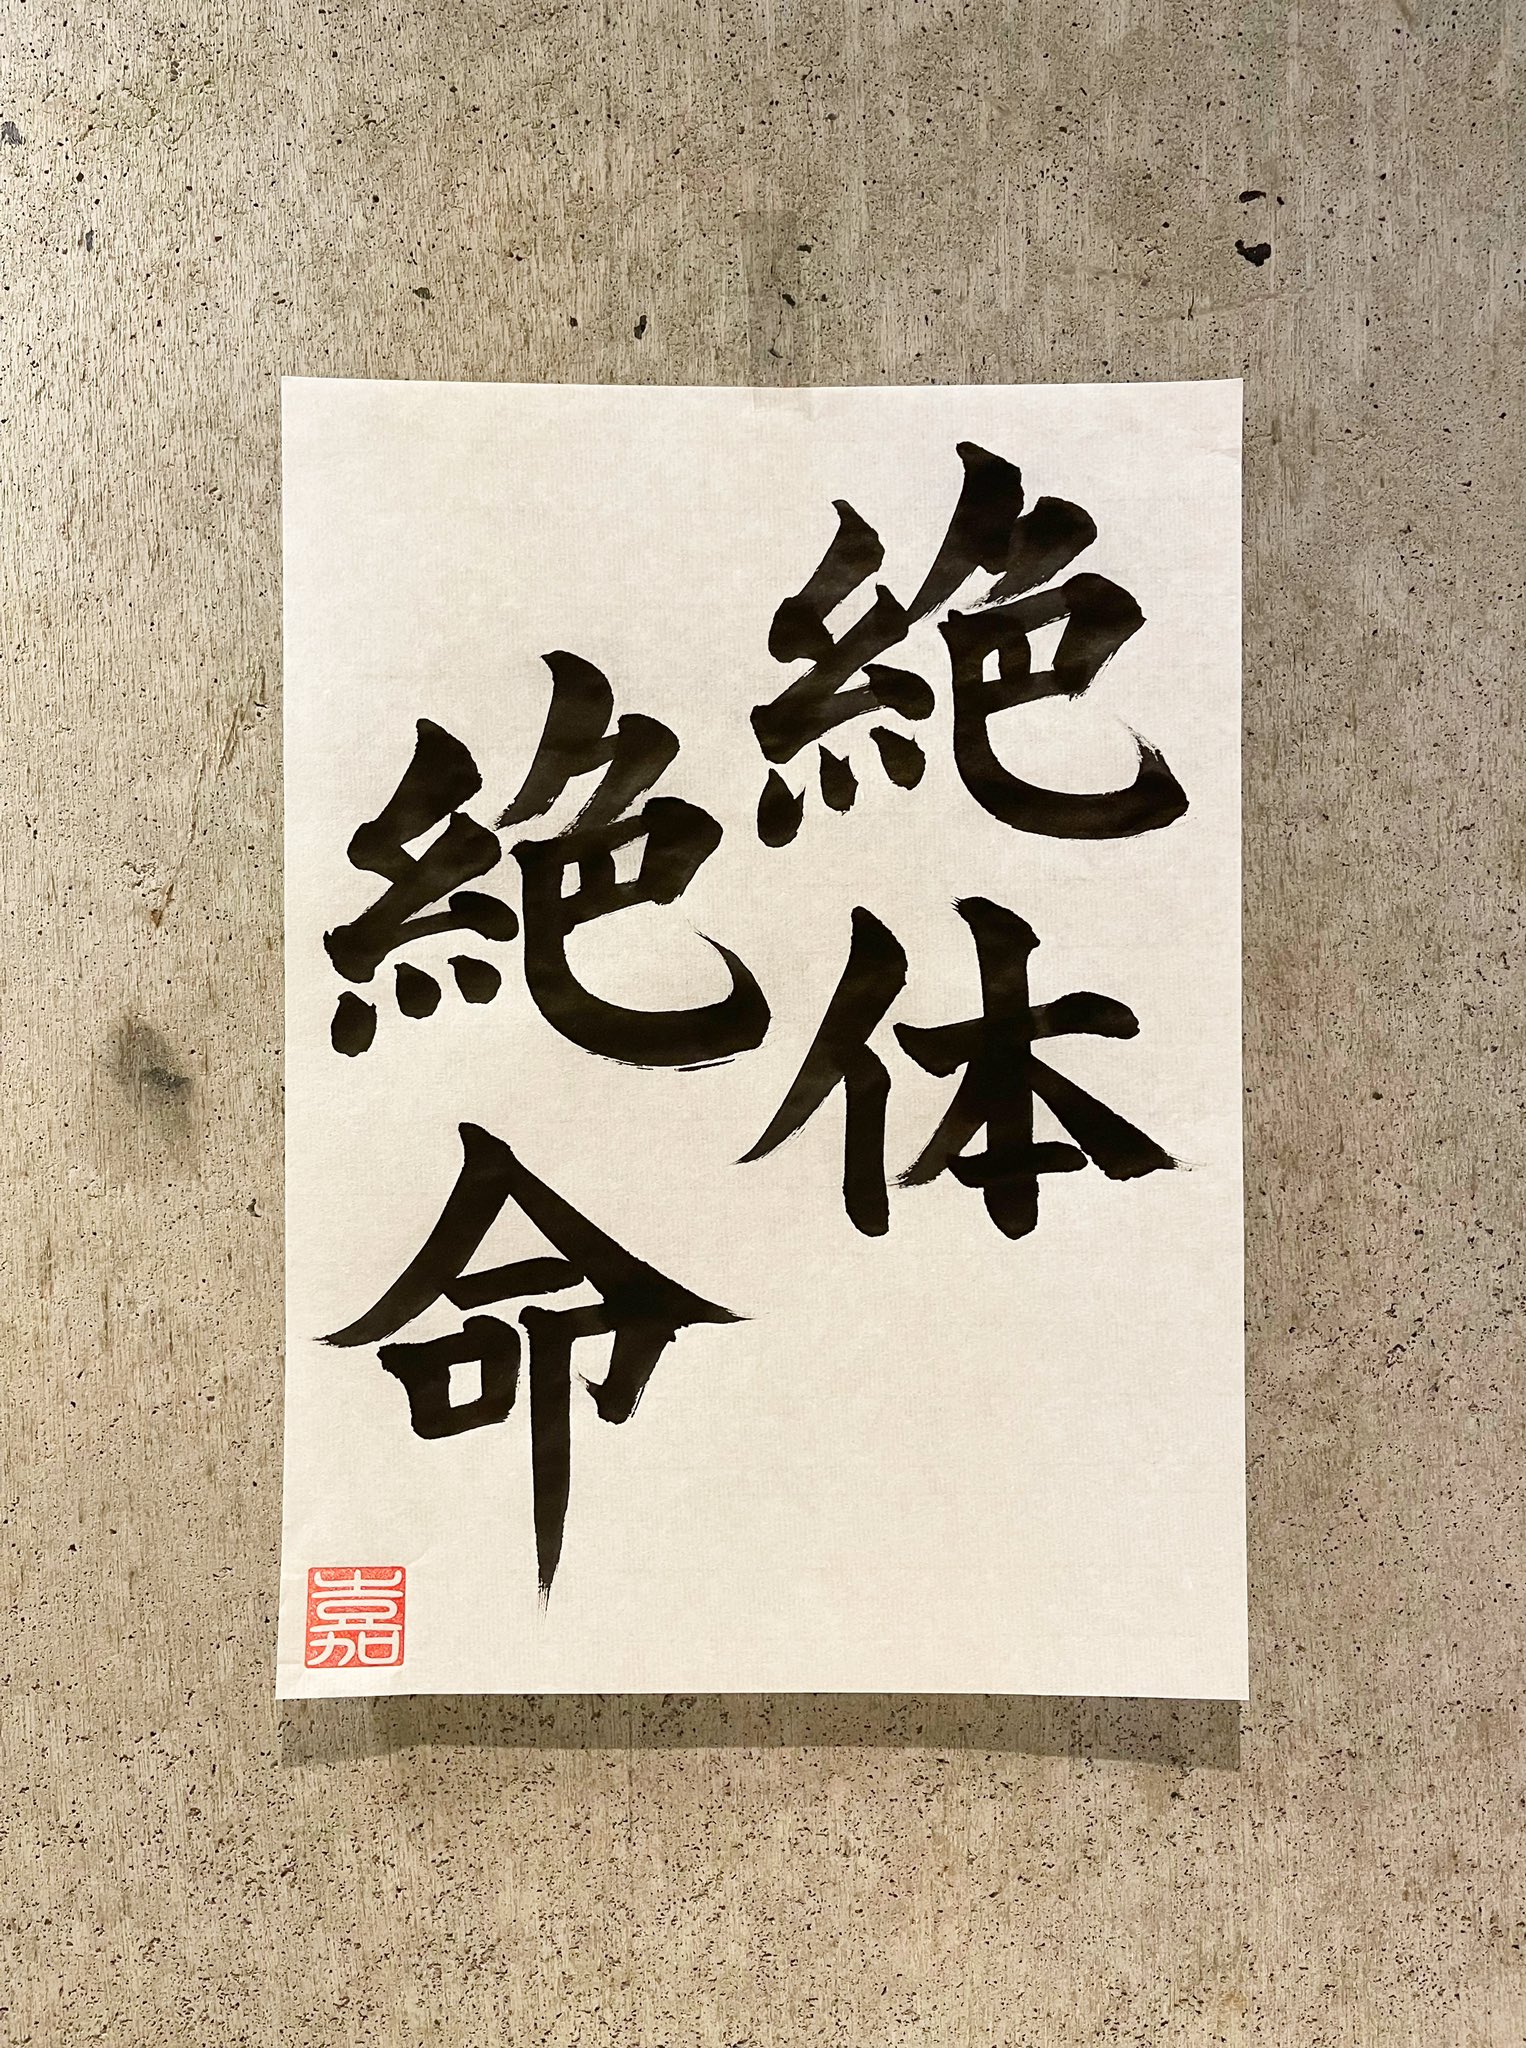 絶体
絶命
嘉